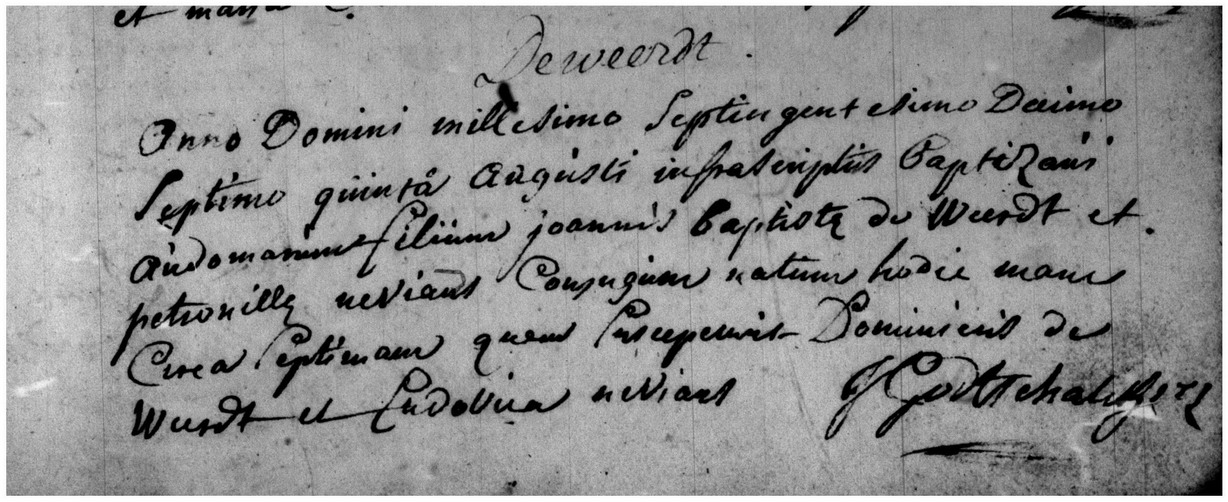 et maria
De weerdt.
Anno Domini millesimo Septingentesimo Decimo
Septimo quinta Augusti infrascriptus baptizavi
Audomarum filium joannis baptistæ de Weerdt et
petronillæ neviant Conjugum natum hodie mane
Circa Septimam quem Susceperunt Dominicus de
Weerdt et Ludovica neviant